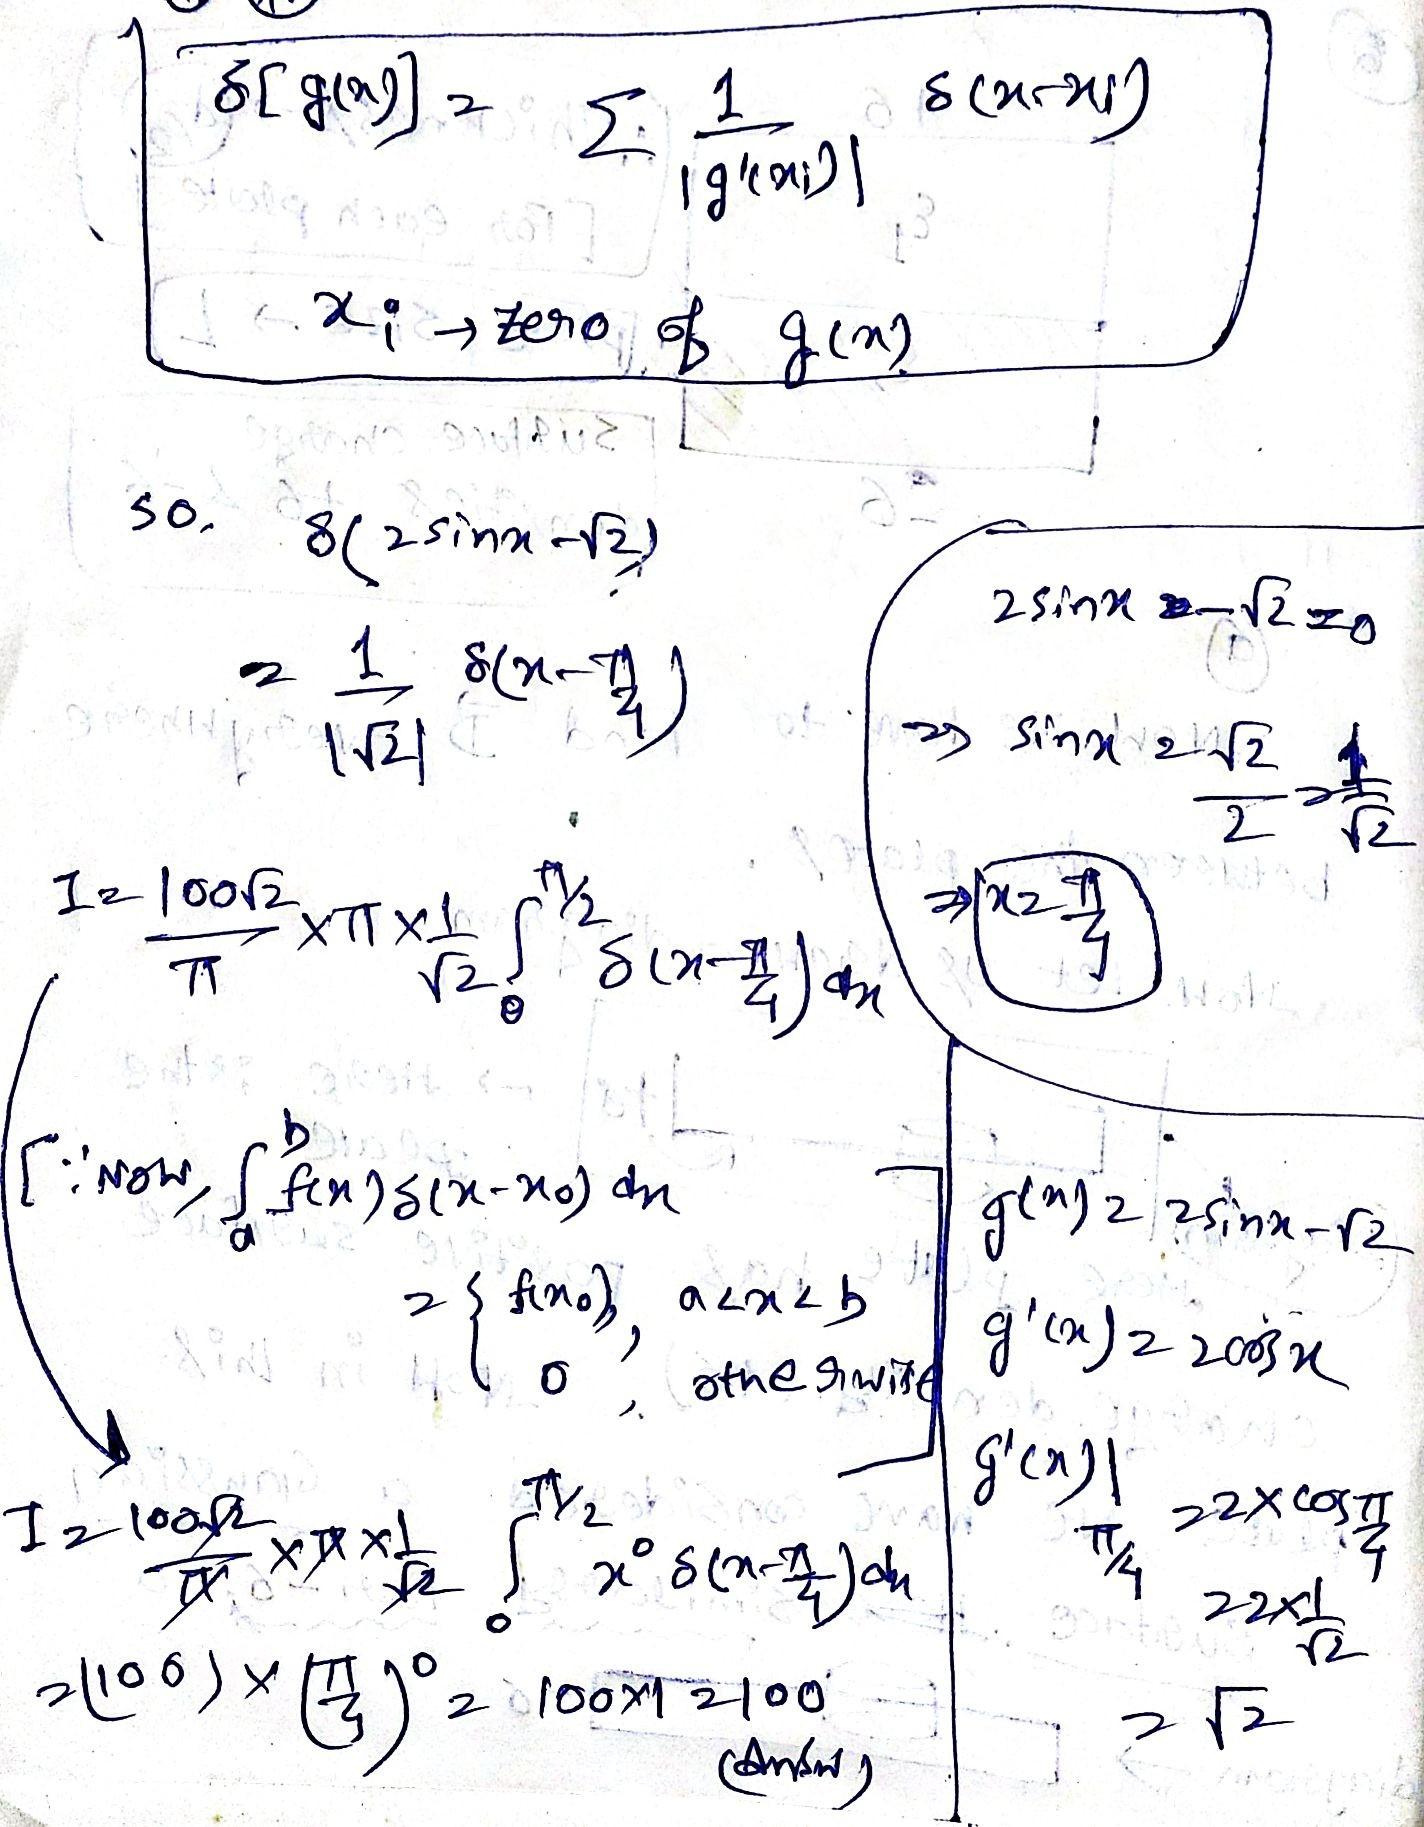 δ[g(x)] = Σ 1/|g'(xi)| δ(x-xi)
xi → zero of g(x)
so, δ(2sinx-√2)
= 1/|√2| δ(x-π/4)
2sinx -√2 = 0
⇒ sinx = √2/2 = 1/√2
⇒ x = π/4
I = 100√2/π × π × 1/√2 ∫₀^π/2 δ(x-π/4) dx
[∵ Now, ∫ₐᵇ f(x) δ(x-x₀) dx
= { f(x₀), a<x<b
0, otherwise ]
g(x) = 2sinx-√2
g'(x) = 2cosx
g'(x)|π/4 = 2×cosπ/4
= 2×1/√2
= √2
I = 100√2/π × π × 1/√2 ∫₀^π/2 x⁰ δ(x-π/4) dx
= (100) × (π/4)⁰ = 100×1 = 100
(Answ)